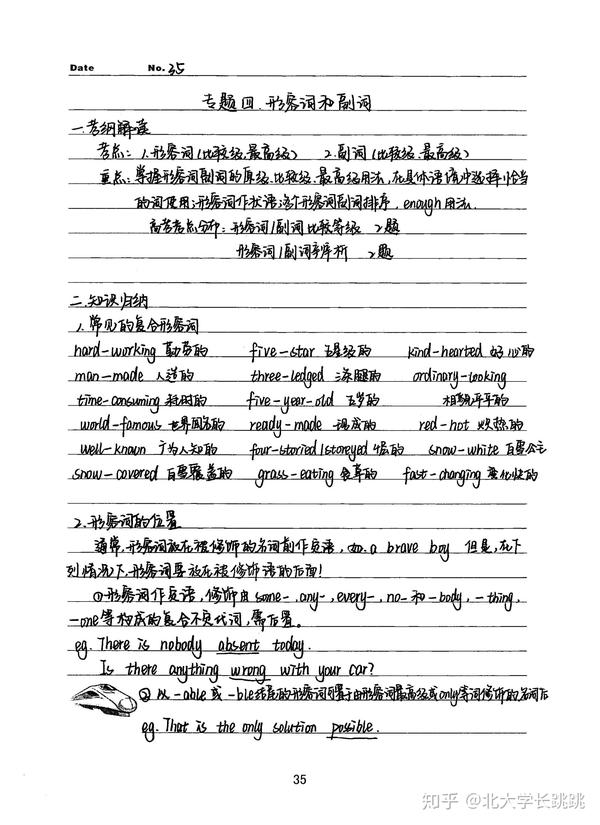 Date No. 35
专题四.形容词和副词
一.考纲解读
考点：1.形容词(比较级.最高级) 2.副词(比较级.最高级)
重点：掌握形容词副词的原级.比较级.最高级用法,在具体语境中选择恰当
的词使用;形容词作状语;多个形容词副词排序. enough用法.
高考考点分布：形容词/副词比较等级 2题
形容词/副词辨析 2题
二.知识归纳
1.常见的复合形容词
hard-working 勤劳的 five-star 五星级的 kind-hearted 好心的
man-made 人造的 three-legged 三条腿的 ordinary-looking
time-consuming 耗时的 five-year-old 五岁的 相貌平平的
world-famous 世界闻名的 ready-made 现成的 red-hot 炽热的
well-known 广为人知的 four-storied/storeyed 4层的 snow-white 白雪公主
snow-covered 白雪覆盖的 grass-eating 食草的 fast-changing 变化快的
2.形容词的位置
通常,形容词放在被修饰的名词前作定语,如.a brave boy 但是,在下
列情况下,形容词要放在被修饰语的后面!
①形容词作定语,修饰由some-,any-,every-,no-和-body,-thing,
-one等构成的复合不定代词,需后置。
eg. There is nobody absent today.
Is there anything wrong with your car?
② 以-able或-ble结尾的形容词可置于由形容词最高级或only等词修饰的名词后
eg. That is the only solution possible.
35
知乎 @北大学长跳跳